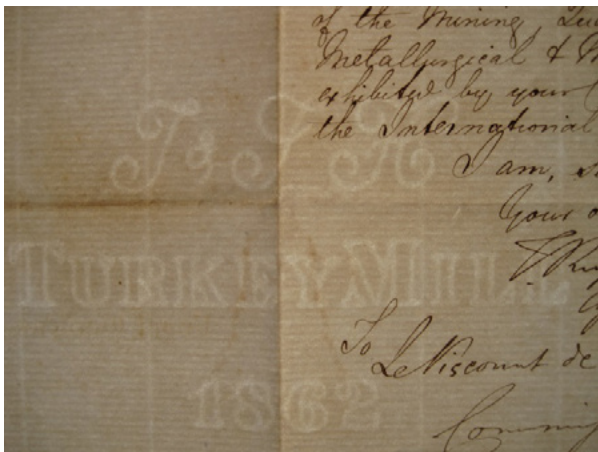 of the Mining,
Metallurgical &
exhibited by your
the International
I am,
Your
To
Le Viscount de
J & T H
TURKEY MILL
1862